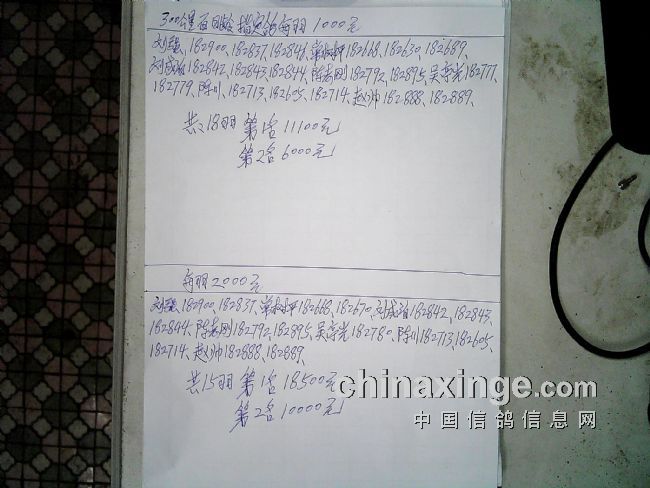 300 回 指定鸽每羽1000元
刘 182900、182837、182841、 182668、182630、182689、
刘成 182842、182843、182844、陈 刚182792、182895、吴 光182777、
182779、陈川、182713、182605、182714、赵 帅182888、182889、
共:18羽 第1名 11100元
第2名 6000元
每羽2000元
刘 182900、182837、 182668、182670、刘成 182842、182843、
182844、陈 刚182792、182895、吴 光182780、陈川182713、182605、
182714、赵 帅182888、182889、
共15羽 第1名 18500元
第2名 10000元
chinaxinge.com
中国信鸽信息网